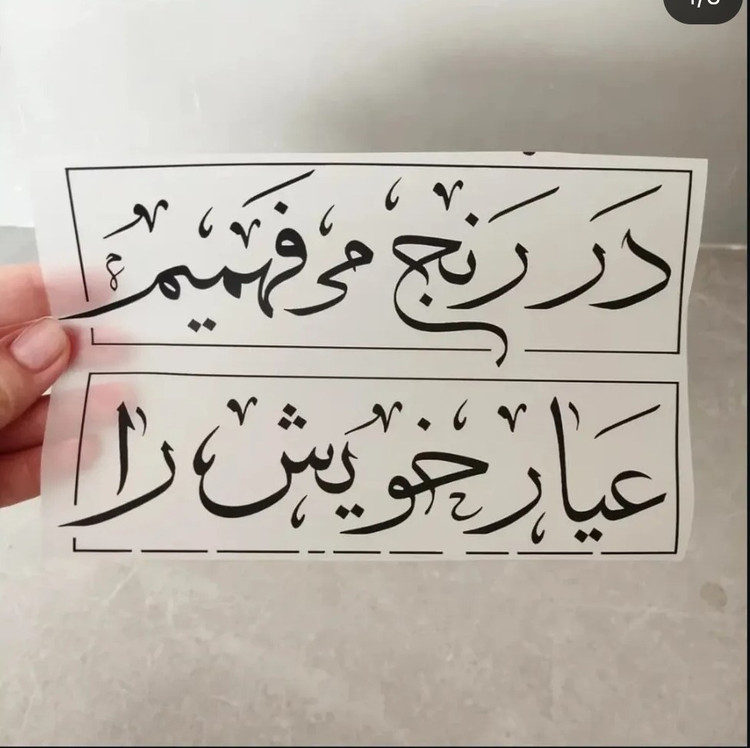 در رنج می فهمیم
عیار خویش را